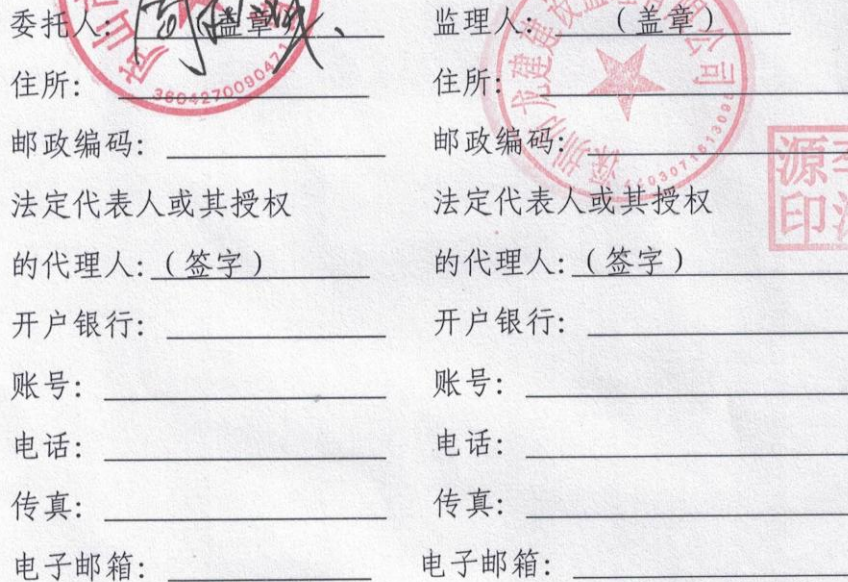 委托人: 盖章
住所:
邮政编码:
法定代表人或其授权
的代理人:(签字)
开户银行:
账号:
电话:
传真:
电子邮箱:
监理人: (盖章)
住所:
邮政编码:
法定代表人或其授权
的代理人:(签字)
开户银行:
账号:
电话:
传真:
电子邮箱:
山
深圳市龙建建设监理有限公司
源
印